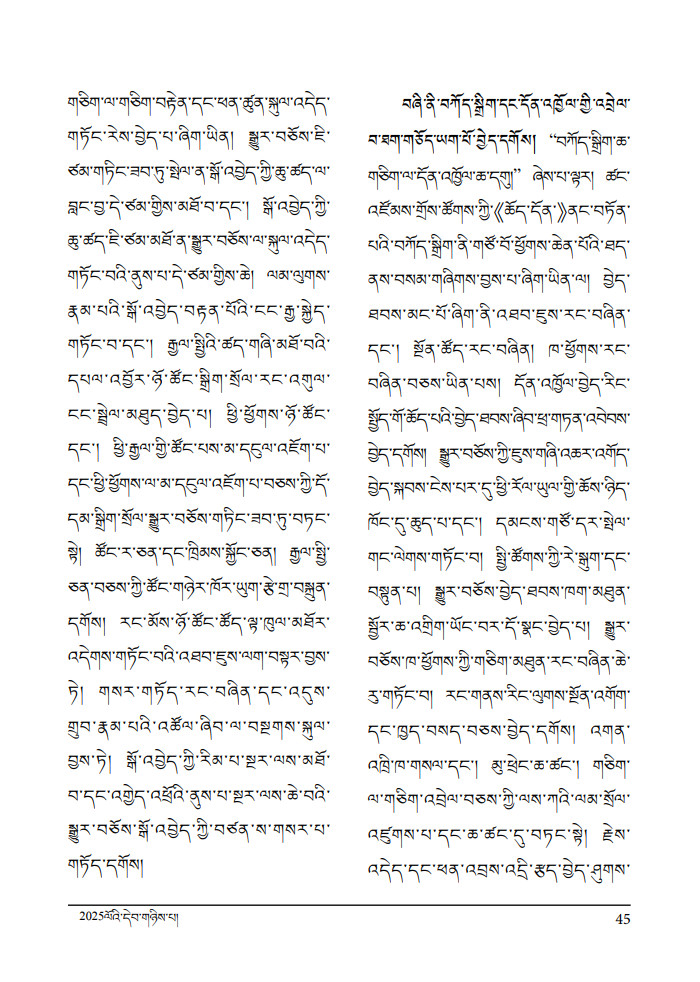 གཅིག་ལ་གཅིག་བརྟེན་དང་ཕན་ཚུན་སྐུལ་འདེད་
གཏོང་རེས་བྱེད་པ་ཞིག་ཡིན། སྒྱུར་བཅོས་ཇི་
ཙམ་གཏིང་ཟབ་ཏུ་སྤེལ་ན་སྒོ་འབྱེད་ཀྱི་ཆུ་ཚད་ལ་
བླང་བྱ་དེ་ཙམ་གྱིས་མཐོ་བ་དང་། སྒོ་འབྱེད་ཀྱི་
ཆུ་ཚད་ཇི་ཙམ་མཐོ་ན་སྒྱུར་བཅོས་ལ་སྐུལ་འདེད་
གཏོང་བའི་ནུས་པ་དེ་ཙམ་གྱིས་ཆེ། ལམ་ལུགས་
རྣམ་པའི་སྒོ་འབྱེད་བརྟན་པོའི་ངང་རྒྱ་སྐྱེད་
གཏོང་བ་དང་། རྒྱལ་སྤྱིའི་ཚད་གཞི་མཐོ་བའི་
དཔལ་འབྱོར་ཉོ་ཚོང་སྒྲིག་སྲོལ་རང་འགུལ་
ངང་སྦྲེལ་མཐུད་བྱེད་པ། ཕྱི་ཕྱོགས་ཉོ་ཚོང་
དང་། ཕྱི་རྒྱལ་གྱི་ཚོང་པས་མ་དངུལ་འཇོག་པ་
དང་ཕྱི་ཕྱོགས་ལ་མ་དངུལ་འཇོག་པ་བཅས་ཀྱི་དོ་
དམ་སྒྲིག་སྲོལ་སྒྱུར་བཅོས་གཏིང་ཟབ་ཏུ་བཏང་
སྟེ། ཚོང་ར་ཅན་དང་ཁྲིམས་སྐྱོང་ཅན། རྒྱལ་སྤྱི་
ཅན་བཅས་ཀྱི་ཚོང་གཉེར་ཁོར་ཡུག་རྩེ་གྲ་བསྐྲུན་
དགོས། རང་མོས་ཉོ་ཚོང་ཚོད་ལྟ་ཁུལ་མཐོར་
འདེགས་གཏོང་བའི་འཐབ་ཇུས་ལག་བསྟར་བྱས་
ཏེ། གསར་གཏོད་རང་བཞིན་དང་འདུས་
གྲུབ་རྣམ་པའི་འཚོལ་ཞིབ་ལ་བསྔགས་སྐུལ་
བྱས་ཏེ། སྒོ་འབྱེད་ཀྱི་རིམ་པ་སྔར་ལས་མཐོ་
བ་དང་འགྱེད་འཕྲོའི་ནུས་པ་སྔར་ལས་ཆེ་བའི་
སྒྱུར་བཅོས་སྒོ་འབྱེད་ཀྱི་བཙན་ས་གསར་པ་
གཏོད་དགོས།
བཞི་ནི་བཀོད་སྒྲིག་དང་དོན་འཁྱོལ་གྱི་འབྲེལ་
བ་ཐག་གཅོད་ཡག་པོ་བྱེད་དགོས། “བཀོད་སྒྲིག་ཆ་
གཅིག་ལ་དོན་འཁྱོལ་ཆ་དགུ།” ཞེས་པ་ལྟར། ཚང་
འཛོམས་གྲོས་ཚོགས་ཀྱི་《ཆོད་དོན་》ནང་བཏོན་
པའི་བཀོད་སྒྲིག་ནི་གཙོ་བོ་ཕྱོགས་ཆེན་པོའི་ཐད་
ནས་བསམ་གཞིགས་བྱས་པ་ཞིག་ཡིན་ལ། བྱེད་
ཐབས་མང་པོ་ཞིག་ནི་འཐབ་ཇུས་རང་བཞིན་
དང་། སྔོན་ཚོད་རང་བཞིན། ཁ་ཕྱོགས་རང་
བཞིན་བཅས་ཡིན་པས། དོན་འཁྱོལ་བྱེད་རིང་
སྤྱོད་གོ་ཆོད་པའི་བྱེད་ཐབས་ཞིབ་ཕྲ་གཏན་འབེབས་
བྱེད་དགོས། སྒྱུར་བཅོས་ཀྱི་ཇུས་གཞི་འཆར་འགོད་
བྱེད་སྐབས་ངེས་པར་དུ་ཕྱི་རོལ་ཡུལ་གྱི་ཆོས་ཉིད་
ཁོང་དུ་ཆུད་པ་དང་། དམངས་གཙོ་དར་སྤེལ་
གང་ལེགས་གཏོང་བ། སྤྱི་ཚོགས་ཀྱི་རེ་སྒུག་དང་
བསྟུན་པ། སྒྱུར་བཅོས་བྱེད་ཐབས་ཁག་མཐུན་
སྦྱོར་ཆ་འགྲིག་ཡོང་བར་དོ་སྣང་བྱེད་པ། སྒྱུར་
བཅོས་ཁ་ཕྱོགས་ཀྱི་གཅིག་མཐུན་རང་བཞིན་ཆེ་
རུ་གཏོང་བ། རང་གནས་རིང་ལུགས་སྔོན་འགོག་
དང་ཁྱད་བསད་བཅས་བྱེད་དགོས། འགན་
འཁྲི་ཁ་གསལ་དང་། མུ་ཕྲེང་ཆ་ཚང་། གཅིག་
ལ་གཅིག་འབྲེལ་བཅས་ཀྱི་ལས་ཀའི་ལམ་སྲོལ་
འཛུགས་པ་དང་ཆ་ཚང་དུ་བཏང་སྟེ། རྗེས་
འདེད་དང་ཕན་འབྲས་འདྲི་རྩད་བྱེད་ཤུགས་
2025ལོའི་དེབ་གཉིས་པ།
45